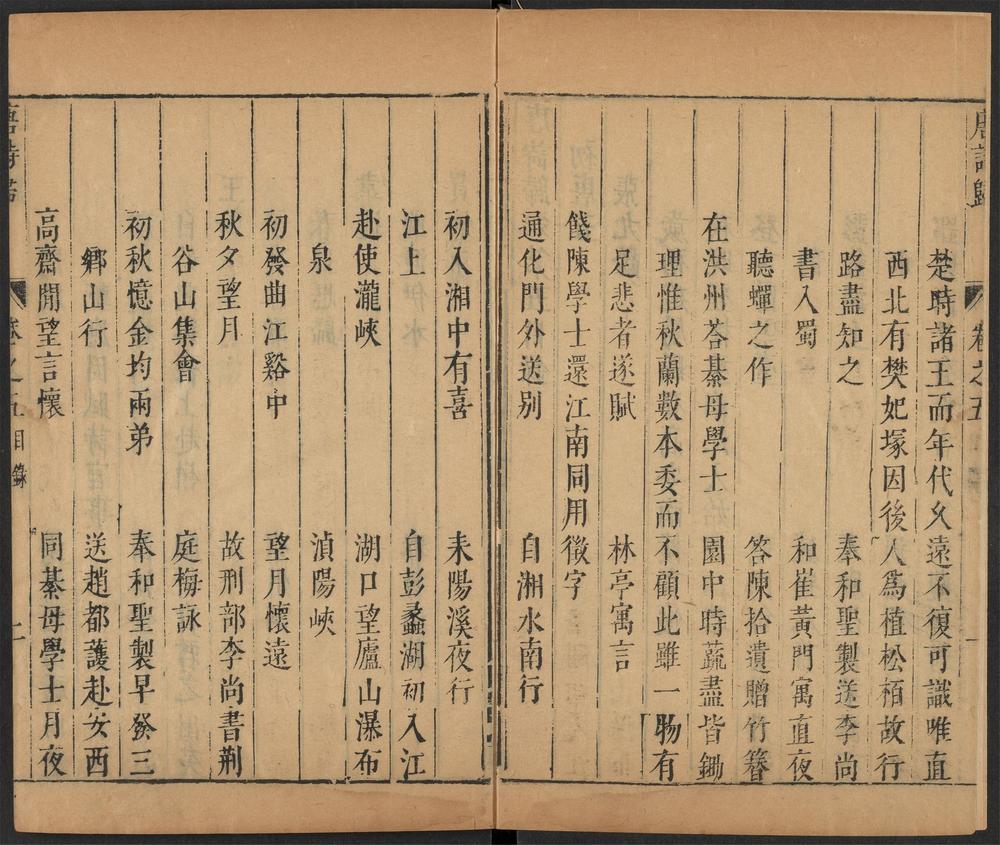 唐詩歸 卷之五
楚時諸王而年代久遠不復可識唯直
西北有樊妃塚因後人爲植松栢故行
路盡知之 奉和聖製送李尚
書入蜀 和崔黃門寓直夜
聽蟬之作 答陳拾遺贈竹簪
在洪州荅綦母學士 園中時蔬盡皆鋤
理惟秋蘭數本委而不顧此雖一物有
足悲者遂賦 林亭寓言
餞陳學士還江南同用徵字
通化門外送别 自湘水南行
初入湘中有喜 耒陽溪夜行
江上 自彭蠡湖初入江
赴使瀧峽 湖口望廬山瀑布
泉 湞陽峽
初發曲江谿中 望月懷遠
秋夕望月 故刑部李尚書荆
谷山集會 庭梅詠
初秋憶金均兩弟 奉和聖製早發三
鄉山行 送趙都護赴安西
高齋閒望言懷 同綦母學士月夜
卷之五目錄